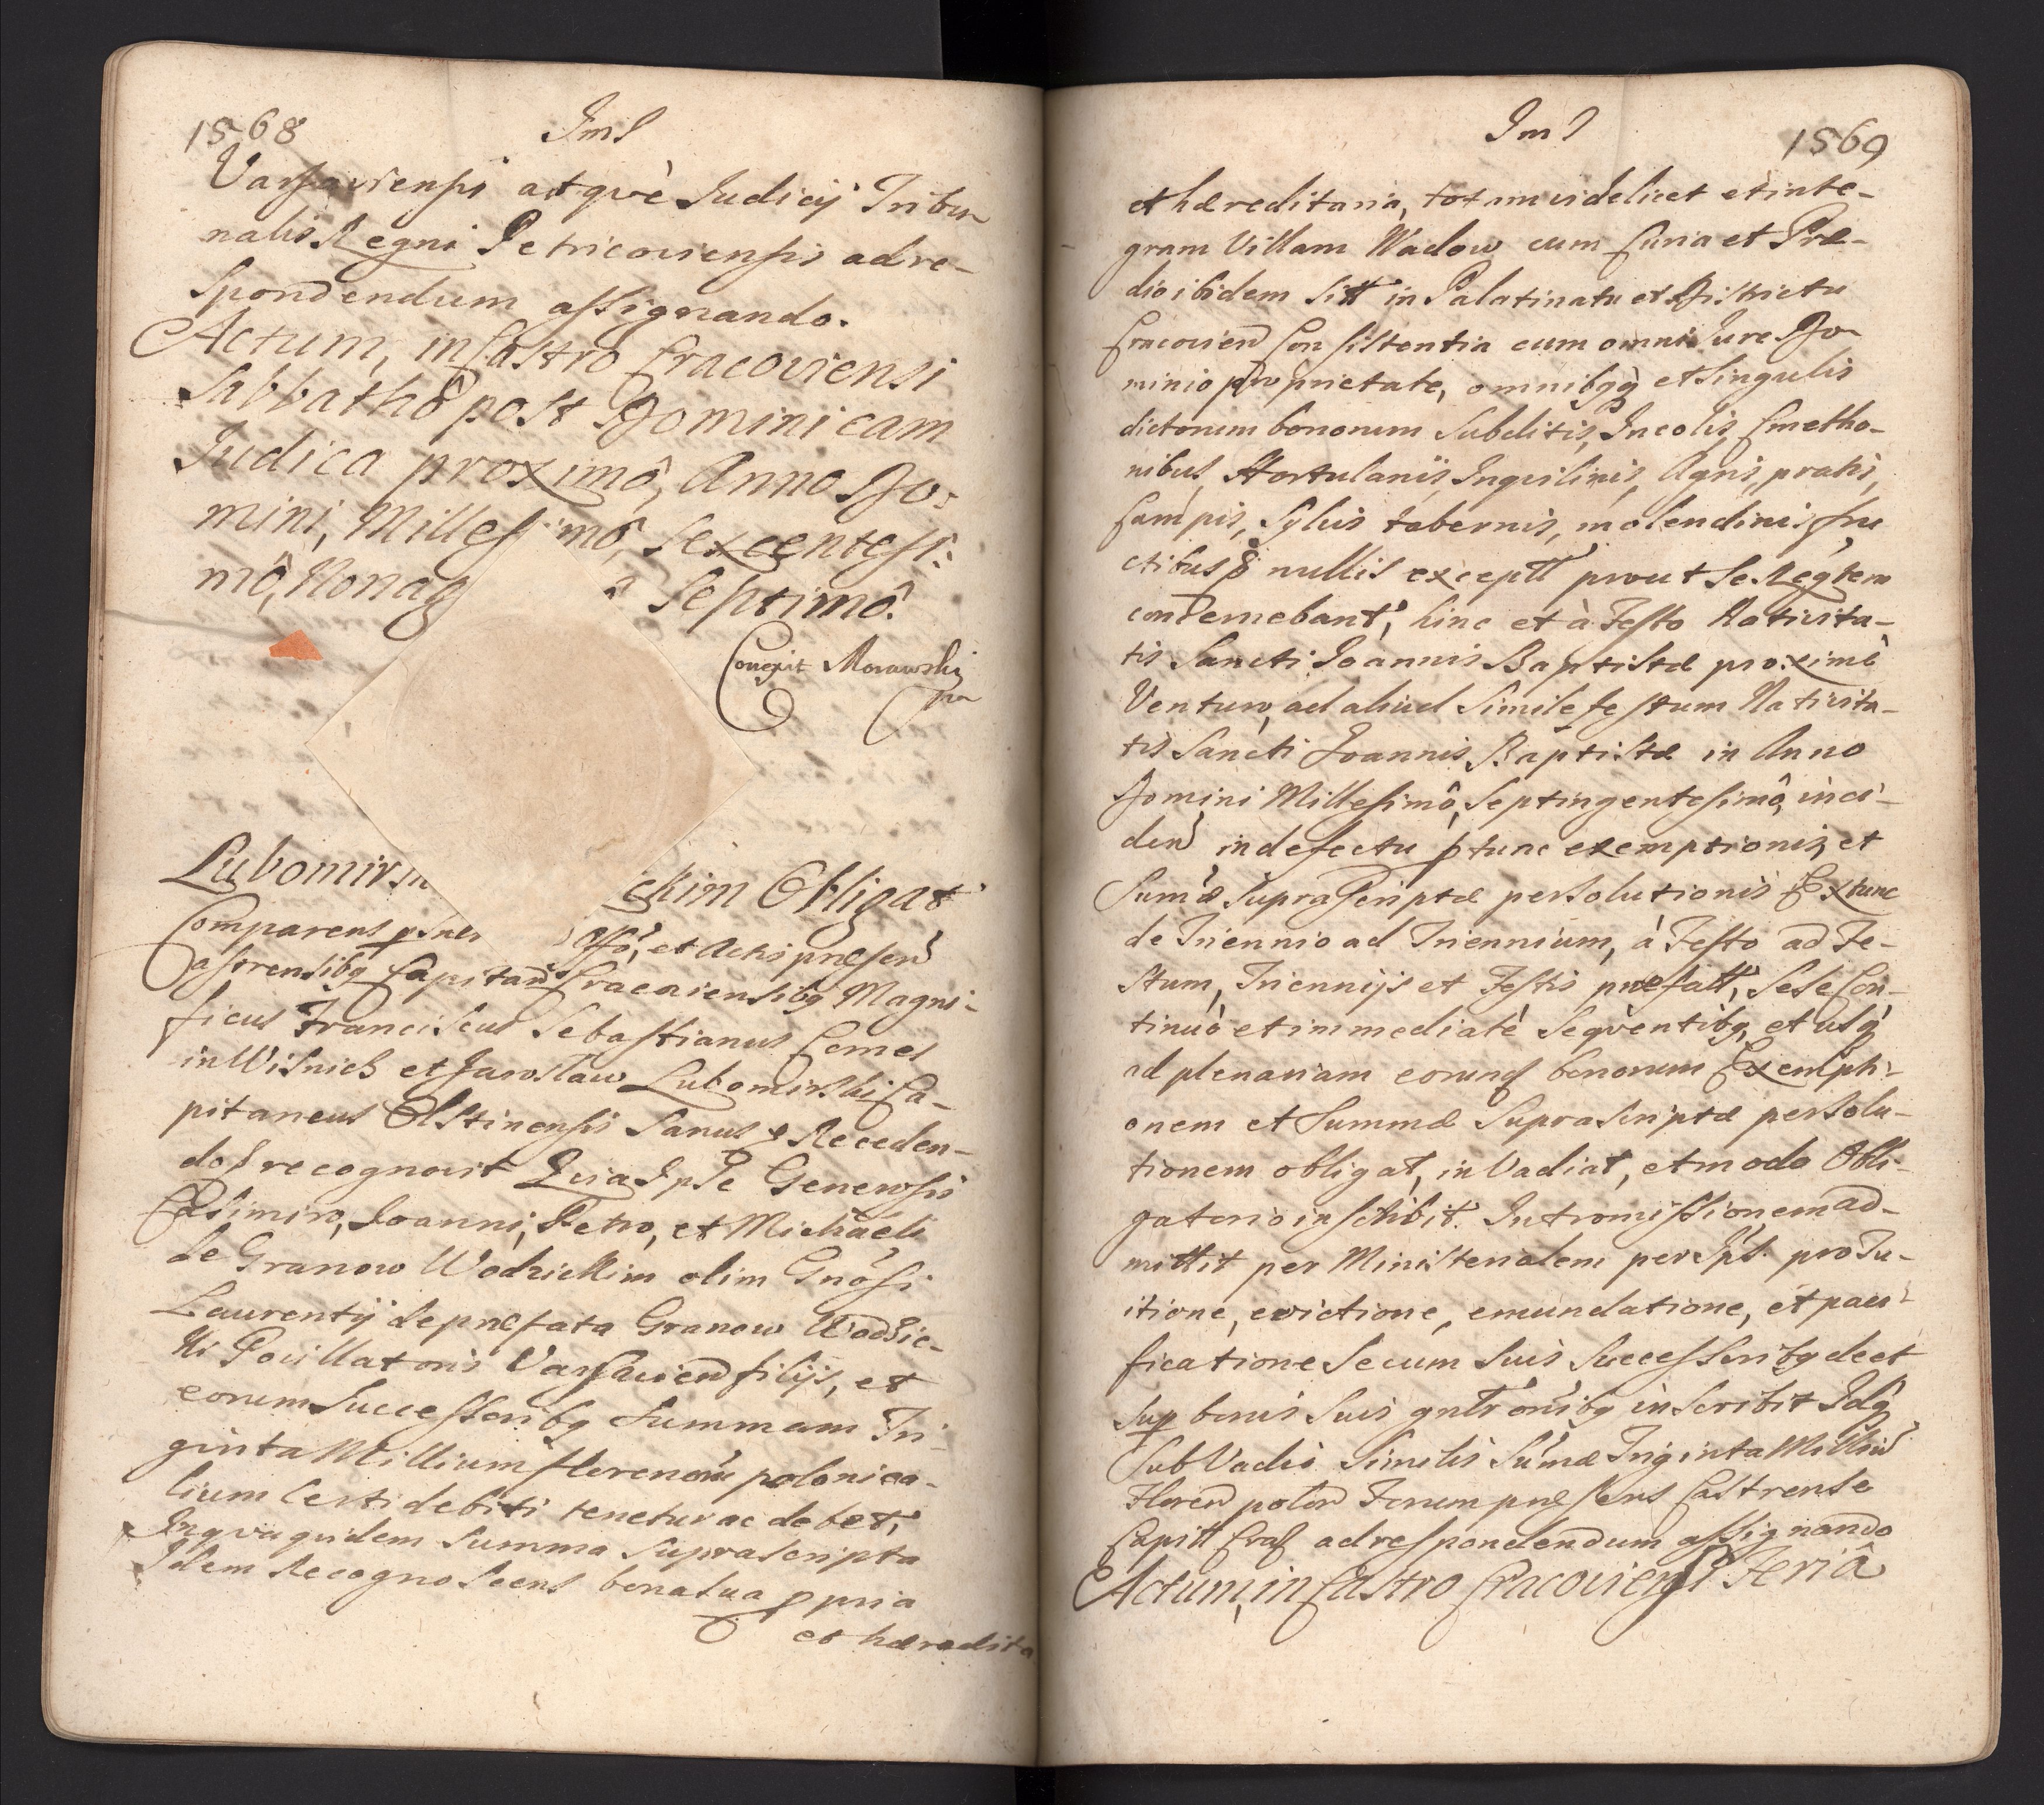 1568
Varsaviensi atqvè Judicij Tribu
nalis Regni Petricoviensis ad re-
spondendum assignando.
Actum, in Castro Cracoviensi
Sabbathô post Dominicam
Judica proximô, Anno Do:
mini, Milles mô, sexcentesi:
mô, Nonag Septimô.
Morawski
Lubomir ckim Obligat
Comparens et Actis præsen
Castrensibg Capitan Cracoviensibg Magni-
ficus Franciscus Sebastianus Comes
in Wisnicz et Jaroslaw Lubomirski Ca-
pitaneus Olstinensis Sanus & Receden-
do recognovit Qvia Ipse Generosis
Casimiro, Joanni, Petro, et Michaeli
de Granow Wodzickim olim Gnosi
Laurentij de præfata Granow Wodzic-
ki Pocillatoris Varsavien filijs, et
eorum Successoribg Summam Tri-
ginta Millium florenorum polonica-
lium Certi debiti tenetur ac debet,
In qva qvidem Summa suprascripta
Idem Recognoscens bona sua ppria
et hæredita
1569
et hæreditaria, totam videlicet et inte-
gram Villam Wadow cum Curia et Præ-
dio ibidem sitt in Palatinatu et Districtu
Cracovien Consistentia cum omni Jure Do-
minio proprietate, omnibgq et singulis
dictorum bonorum Subditis, Incolis, Cmetho-
nibus, Hortulanis, Inqvilinis, Agris, pratis,
Campis, Sylvis tabernis, molendinis fru
ctibus & nullis exceptt prout se
hinc et à Festo Nativita-
tis Sancti Joannis Baptistæ proximè
Venturo, ad aliud Simile festum Nativita-
tis Sancti Joannis Baptistæ in Anno
Domini Millesimô, Septingentesimô, inci-
den in defectu p tunc exemptionis, et
Sumæ supraScriptæ persolutionis Extunc
de Triennio ad Triennium, à Festo ad Fe-
stum, Triennijs et Festis præfatt, Sese Con-
tinuò et immediatè Seqventibg, et usq
ad plenariam eorund bonorum Exempti-
onem et Summæ Suprascriptæ persolu-
tionem obligat, inVadiat, et modo Obli-
gatorio inscribit. Intromissionem ad-
mittit per Ministerialem per Ipt. pro Tu-
itione, evictione, emundatione, et paci-
ficatione se cum suis Successoribg de et
sup bonis suis gnlr onibg inscribit Idq
Sub Vadio Similis Sumæ Triginta Milliu
Floren polon Forum præsens Castrense
Capitt Crac ad respondendum assignando
Actum, in Castro Cracoviensi Feriâ